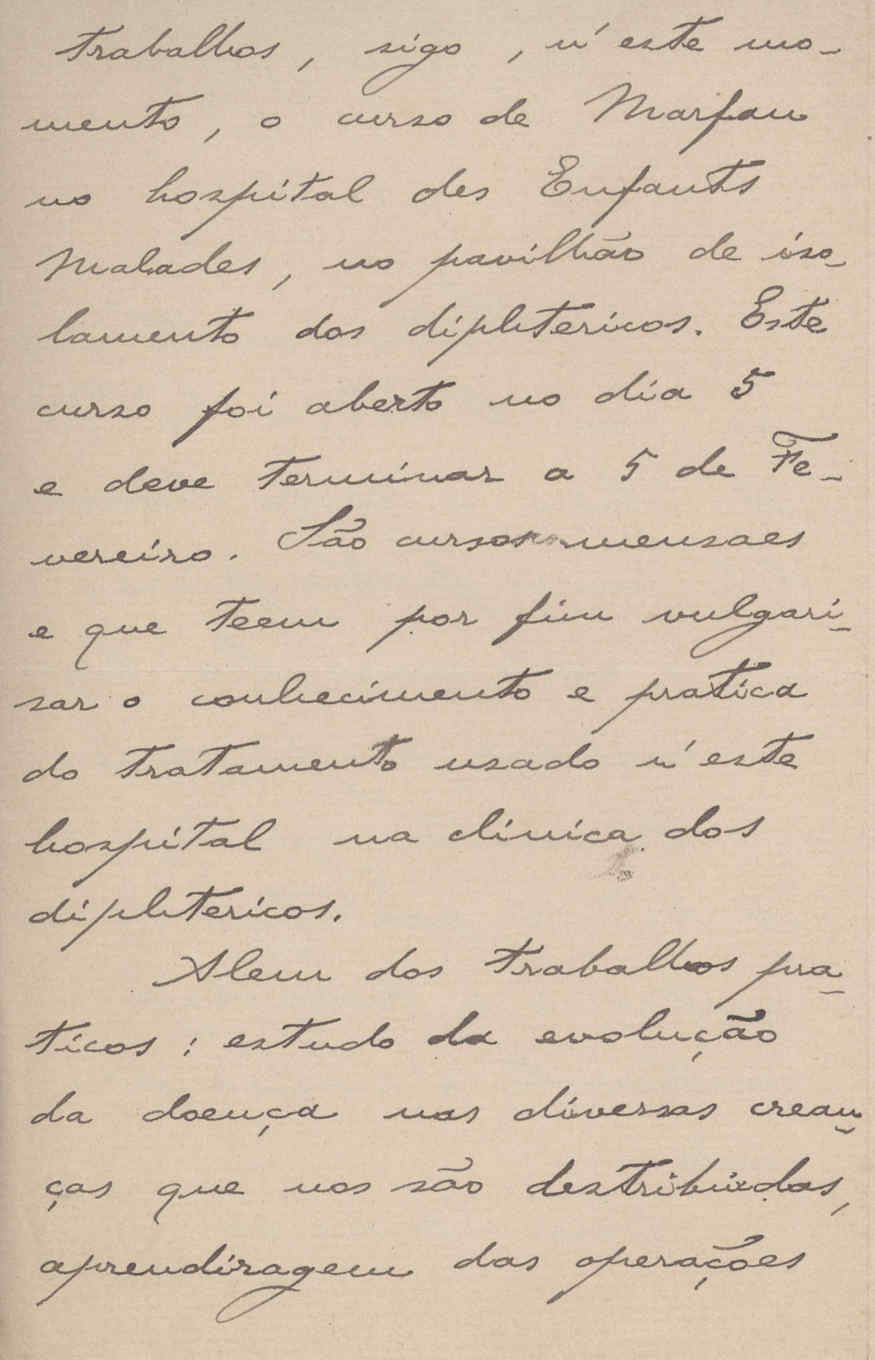 trabalhos, sigo, n'este mo-
mento, o curso de Marfan
no hospital des Enfants
Malades, no pavilhão de iso-
lamento dos diphtericos. Este
curso foi aberto no dia 5
e deve terminar a 5 de Fe-
vereiro. São cursos mensaes
e que teem por fim vulgari-
sar o conhecimento e pratica
do tratamento usado n'este
hospital na clinica dos
diphtericos.
Alem dos trabalhos pra-
ticos: estudo da evolução
da doença nas diversas crean-
ças que nos são destribuidas,
aprendizagem das operações